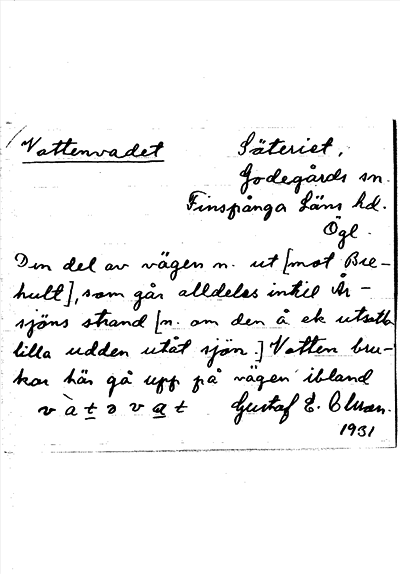 Vattenvadet
Säteriet,
Godegårds sn.
Finspånga Läns hd.
Ögl.
Den del av vägen n. ut [mot Bre-
hult], som går alldeles intill År-
sjöns strand [n. om den å ek utsatta
lilla udden utåt sjön.] Vatten bru-
kar här gå upp på vägen ibland
v à t ə v a t Gustaf E.
1931